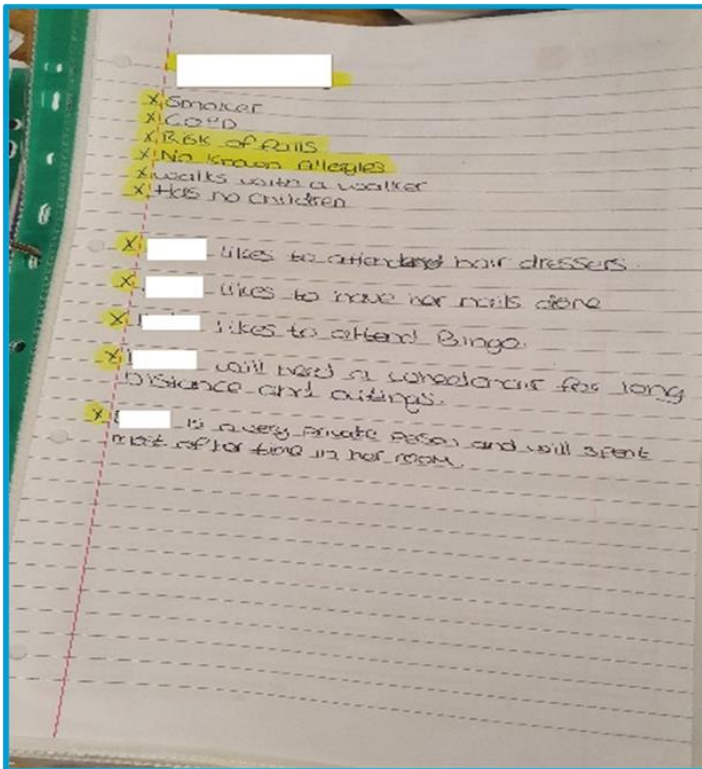 x Smoker
x COPD
x Risk of falls
x No known allergies
x walks with a walker
x Has no children
x likes to attend hair dressers.
x likes to have her nails done
x likes to attend Bingo.
x will need a wheelchair for long
Distance and outings.
x is a very private Person and will spent
most of her time in her room.